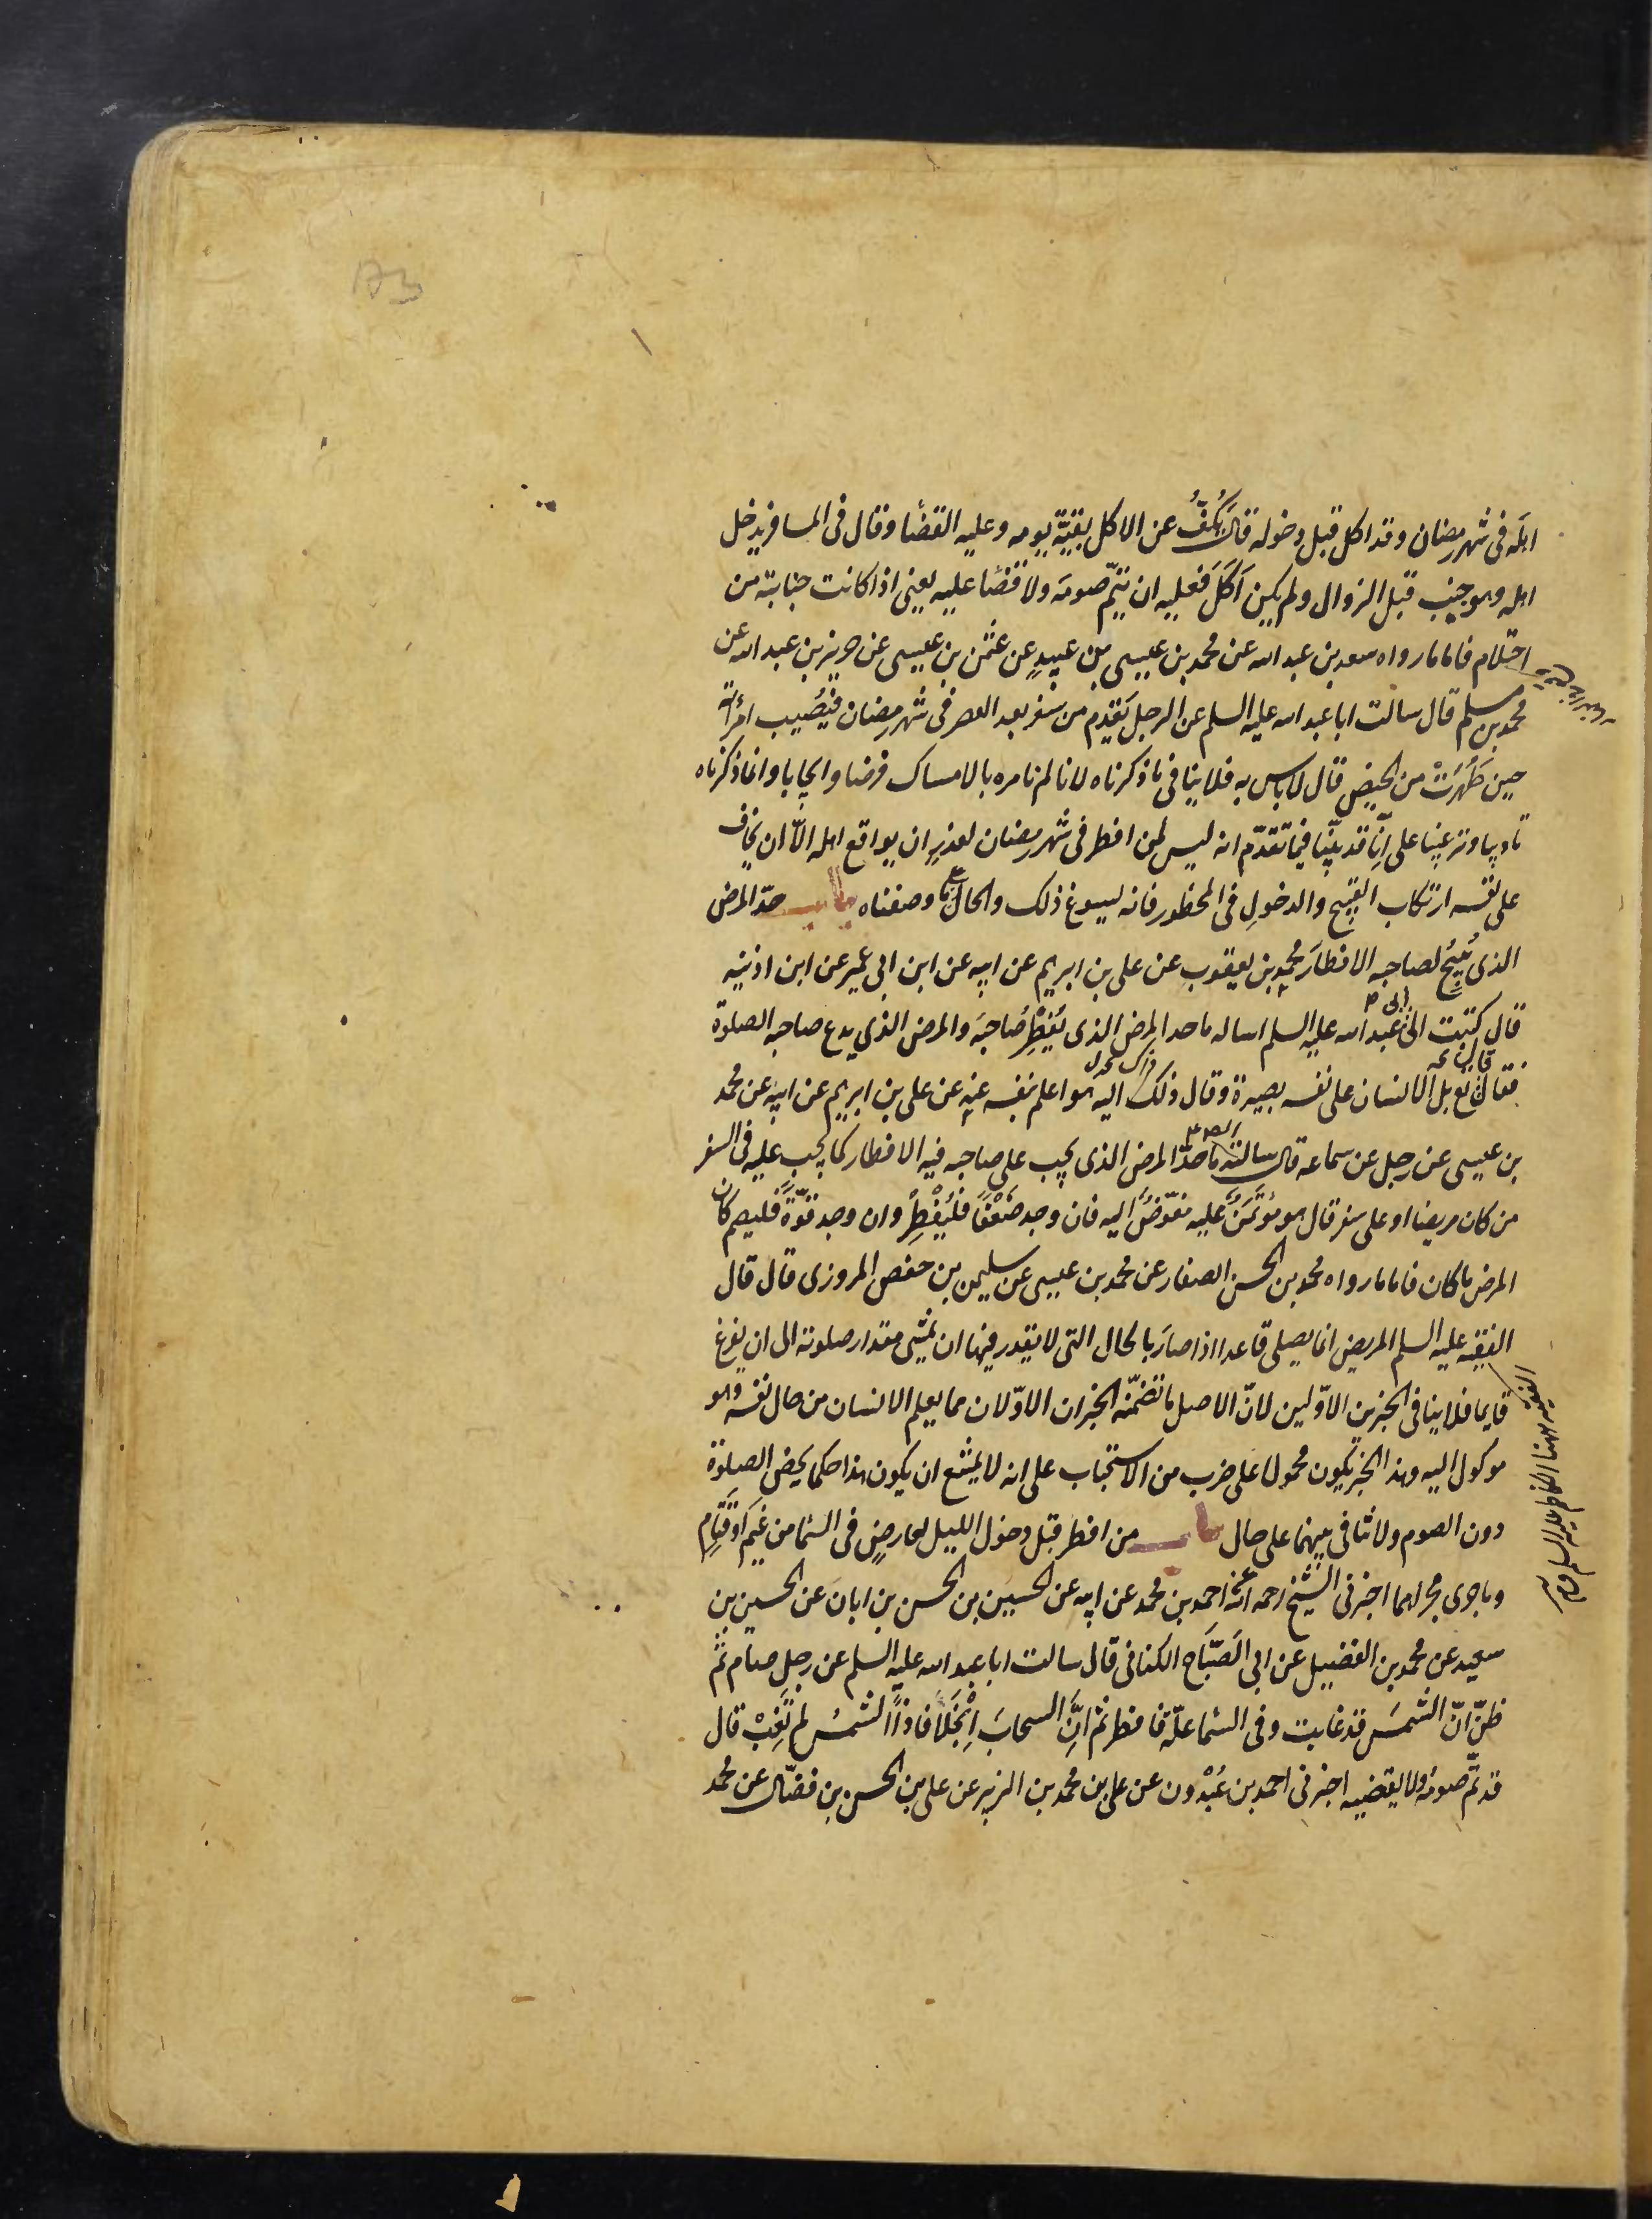 اهله فى شهر رمضان وقد اكل قبل دخوله قال يَكُفُّ عن الاكل بقيّة يومه وعليه القضا وقال فى المسافر يدخل
اهله وهو جنب قبل الزوال ولم يكن اَكَلَ فعليه ان يتمّ صومه ولا قضا عليه يعنى اذا كانت جنابته من
احتلام فاما ما رواه سعد بن عبد الله عن محمد بن عيسى بن عبيدٍ عن عثمن بن عيسى عن حريز بن عبد الله عن
محمد بن مسلم قال سالت ابا عبد الله عليه السلم عن الرجل يَقدِم من سفر بعد العصر فى شهر رمضان فيُصيب امرأته
حين طَهُرَتْ من الحيض قال لا باس به فلا ينافى ما ذكرناه لانا لم نامره بالامساك فرضا وايجابا وانما ذكرناه
تاديبا وترغيبا على انّا قد بيّنّا فيما تقدّم انه ليس لمن افطر فى شهر رمضان لعذرٍ ان يواقع اهله الّا ان يخاف
على نفسه ارتكاب القبيح والدخولِ فى المحظور فانه يسوغ ذلك والحال ما وصفناه باب حدّ المرض
الذى يُبيحُ لصاحبه الافطارَ محمد بن يعقوب عن على بن ابرهيم عن ابيه عن ابن ابى عمير عن ابن اذينه
قال كتبت الى ابى عبد الله عليه السلم اساله ما حد المرض الذى يُفطِرُ صَاحبَه والمرض الذى يدع صاحبه الصلوة
فقال بل الانسان على نفسه بصيرة وقال ذلك اليه هو اعلم بنفسه عنه عن على بن ابرهيم عن ابيه عن محمد
بن عيسى عن رجل عن سماعه قال سالته ما حدّ المرض الذى يجب على صاحبه فيه الافطار كما يجب عليه فى السفر
من كان مريضا او على سفر قال هو مُؤتَمَنٌ عليه مفوّضٌ اليه فان وجد ضَعْفًا فَليُفْطِرْ وان وجد قوّةً فليصم كان
المرض ما كان فاما ما رواه محمد بن الحسن الصفار عن محمد بن عيسى عن سليمن بن حفص المروزى قال قال
الفقيه عليه السلم المريض انما يصلى قاعدا اذا صارَ بالحال التى لا يقدر فيها ان يمشى مقدار صلوته الى ان يفرغ
قايما فلا ينافى الخبرين الاوّلين لانّ الاصل ما تضمّنه الخبران الاوّلان مما يعلم الانسان من حال نفسه وهو
موكول اليه وهذا الخبر يكون محمولا على ضرب من الاستحباب على انه لا يمتنع ان يكون هذا حكما يخص الصلوة
دون الصوم ولا تنافى بينهما على حال باب من افطر قبل دخول الليل لعارضٍ فى السّما من غَيمٍ او قَتَامٍ
وما جرى مجراهما اخبرنى الشيخ رحمه الله عن احمد بن محمد عن ابيه عن الحسين بن الحسن بن ابان عن الحسين بن
سعيد عن محمد بن الفضيل عن ابى الصَبّاح الكنانى قال سالت ابا عبد الله عليه السلم عن رجل صام ثم
ظنّ انّ الشمسَ قد غابت وفى السّما علّة فافطر ثم انّ السحابَ انْجَلَا فاذا الشمسُ لم تَغِبْ قال
قد تمّ صومه ولا يقضيه اخبرنى احمد بن عُبْدون عن على بن محمد بن الزبير عن على بن الحسن بن فضّال عن محمد